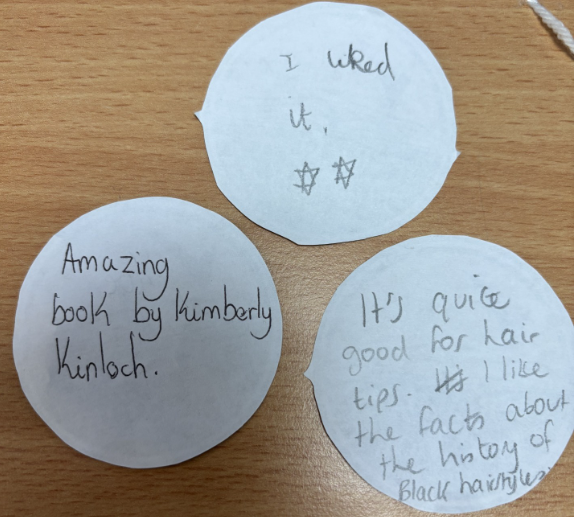 I liked
it.
Amazing
book by Kimberly
Kinloch.
It's quite
good for hair
tips. I like
the facts about
the history of
Black hairstyles.